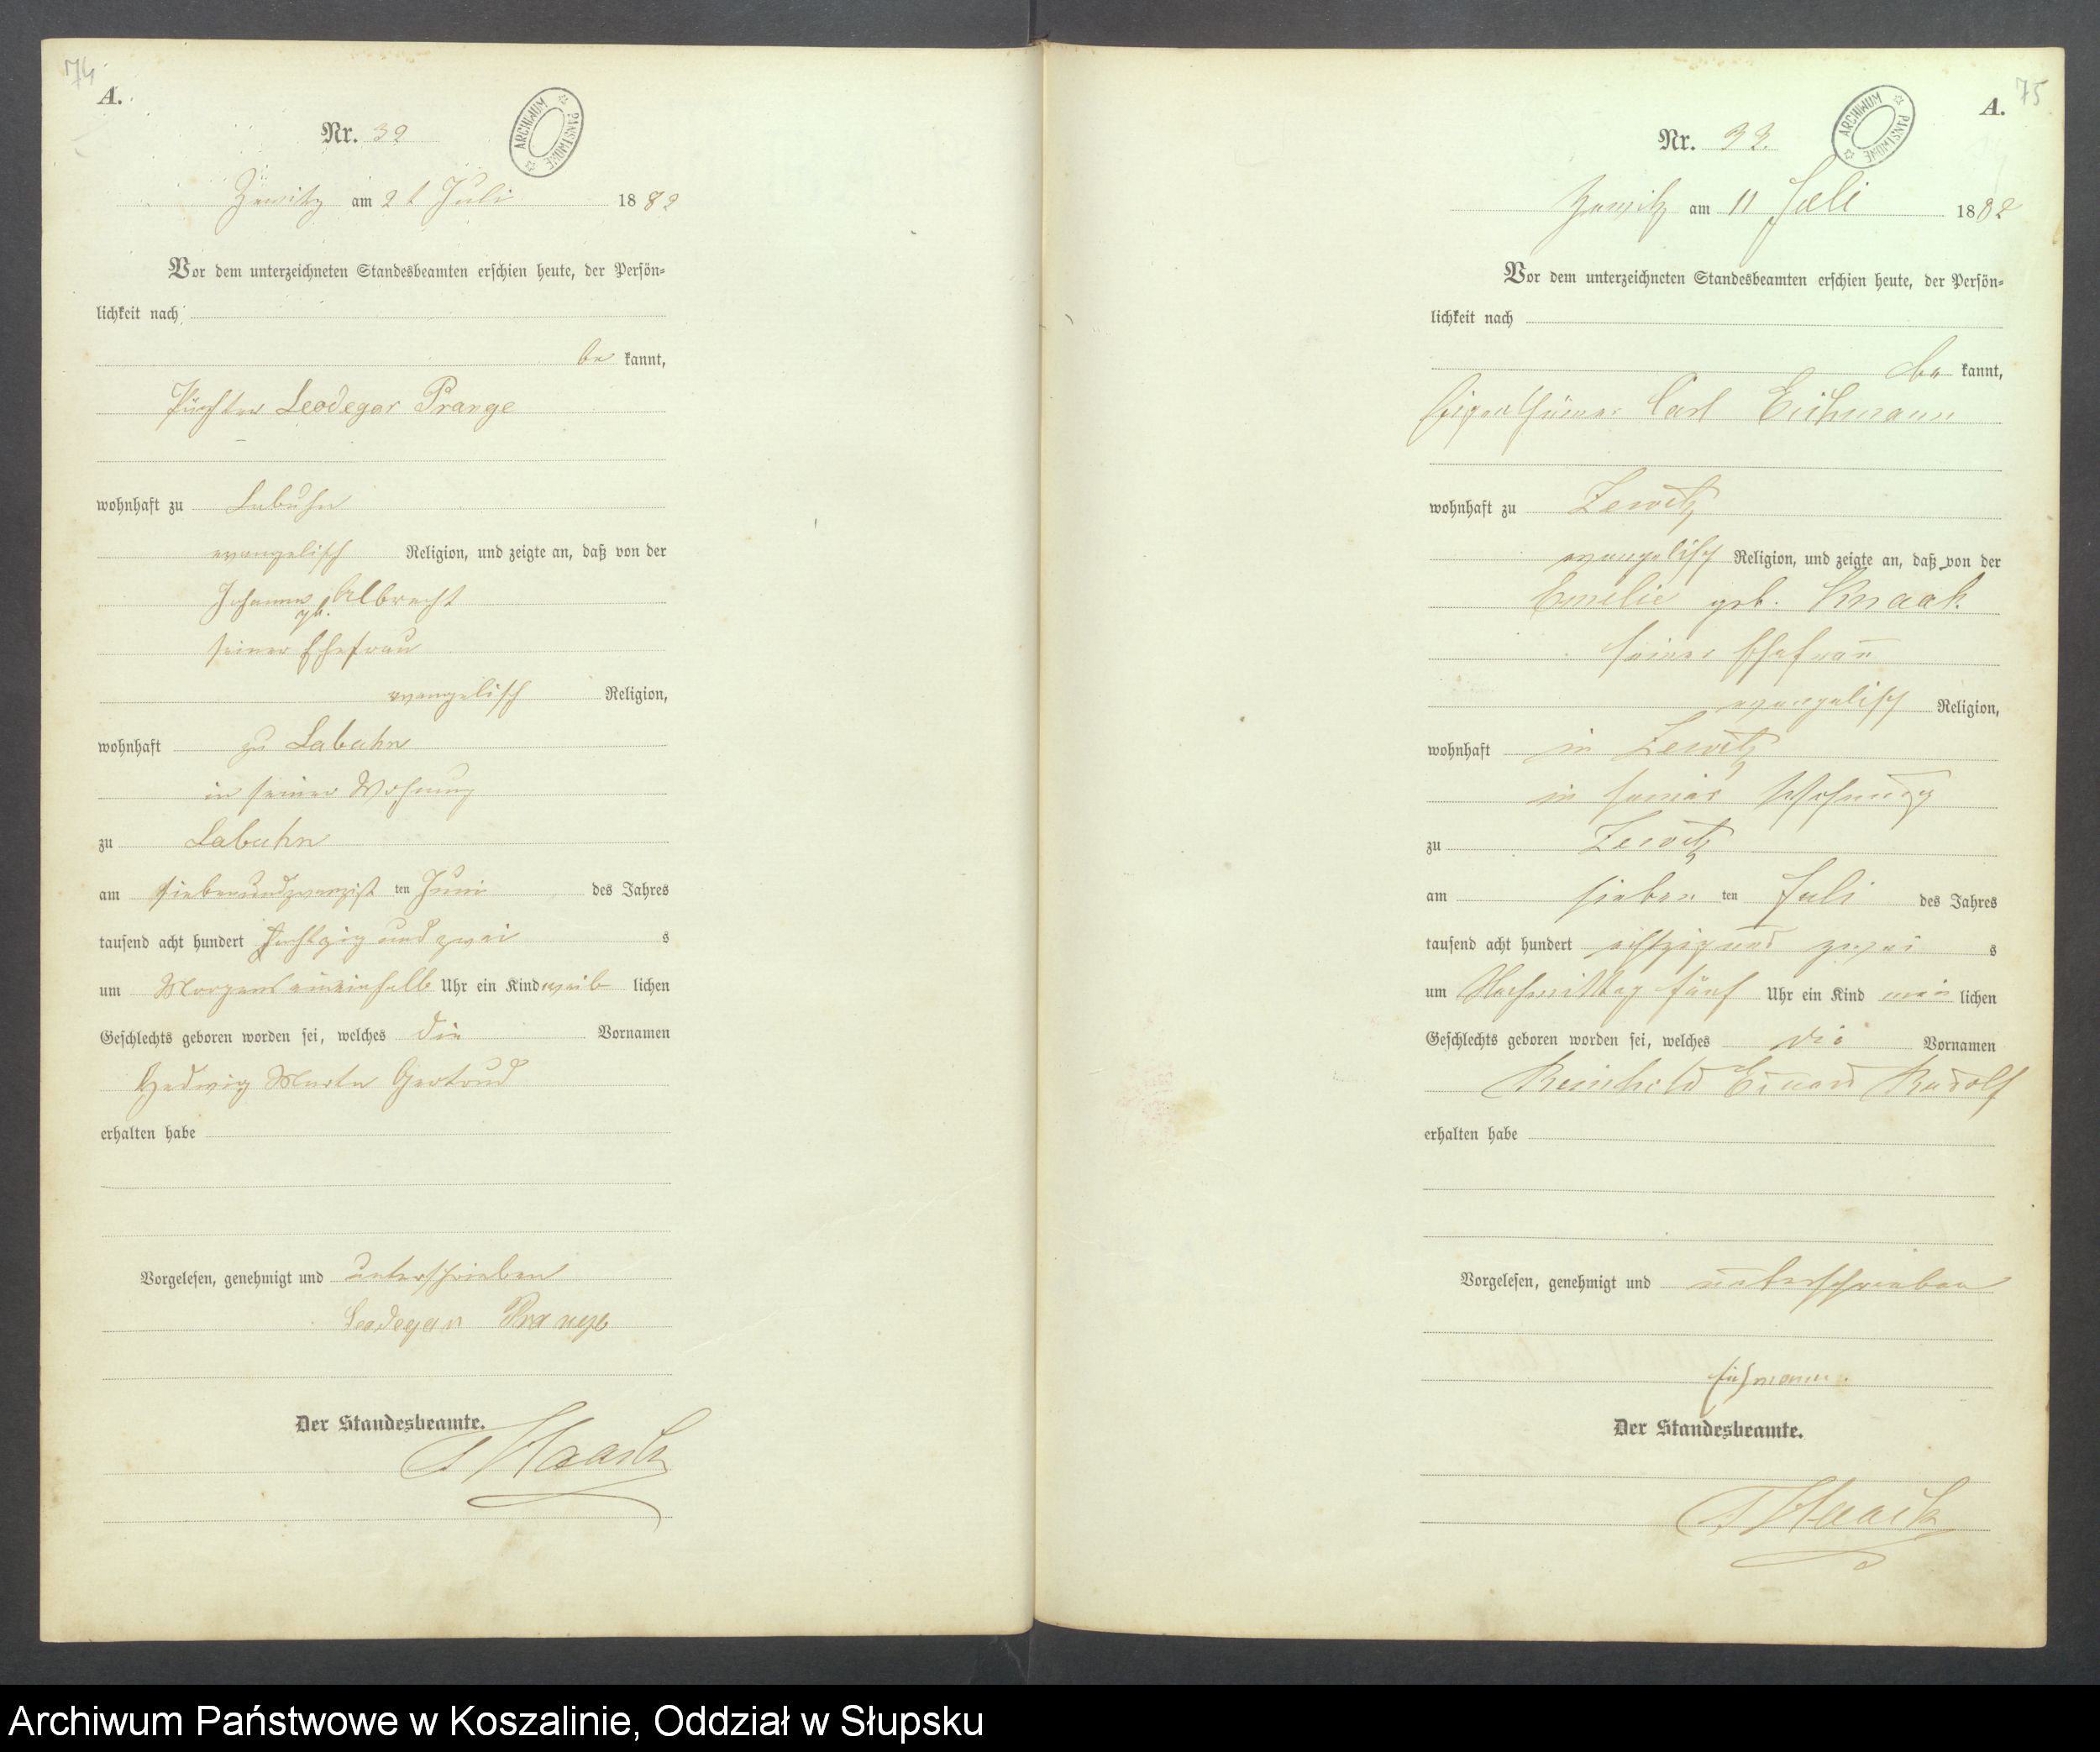 74
A.
ARCHIWUM PAŃSTWOWE
Nr. 32
Zewitz am 21 Juli 1882
Vor dem unterzeichneten Standesbeamten erschien heute, der Persön-
lichkeit nach
be kannt,
Pächter Leodegar Prange
wohnhaft zu Labuhn
evangelisch Religion, und zeigte an, daß von der
Johanna geb. Albrecht
seiner Ehefrau
evangelisch Religion,
wohnhaft zu Labuhn
in seiner Wohnung
zu Labuhn
am siebenundzwanzigst ten Juni des Jahres
tausend acht hundert achtzig und zwei s
um Morgens Uhr ein Kind weib lichen
Geschlechts geboren worden sei, welches die Vornamen
Hedwig Martha Gertrud
erhalten habe
Vorgelesen, genehmigt und unterschrieben
Leodegar Prange
Der Standesbeamte.
Haack
75
A.
ARCHIWUM PAŃSTWOWE
Nr. 33.
Zewitz am 11 Juli 1882
Vor dem unterzeichneten Standesbeamten erschien heute, der Persön-
lichkeit nach
be kannt,
Eigenthümer Carl Eichmann
wohnhaft zu Zewitz
evangelisch Religion, und zeigte an, daß von der
Emilie geb. Knaak
seiner Ehefrau
evangelisch Religion,
wohnhaft in Zewitz
in seiner Wohnung
zu Zewitz
am sieben ten Juli des Jahres
tausend acht hundert achtzig und zwei s
um Nachmittag fünf Uhr ein Kind män lichen
Geschlechts geboren worden sei, welches die Vornamen
Reinhold Eduard Rudolf
erhalten habe
Vorgelesen, genehmigt und unterschrieben
Eichmann.
Der Standesbeamte.
Haack
Archiwum Państwowe w Koszalinie, Oddział w Słupsku